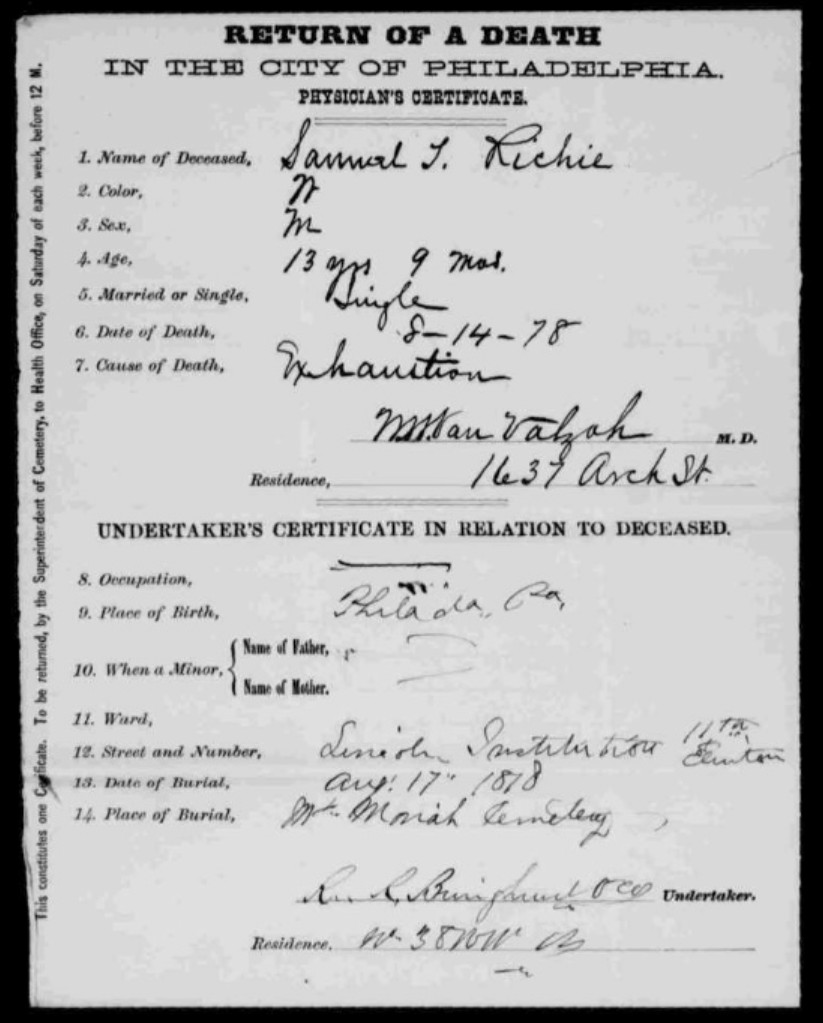 RETURN OF A DEATH
IN THE CITY OF PHILADELPHIA.
PHYSICIAN'S CERTIFICATE.
1. Name of Deceased, Samuel T. Richie
2. Color, W
3. Sex, M
4. Age, 13 yrs 9 mos.
5. Married or Single, Single
6. Date of Death, 8-14-78
7. Cause of Death, Exhaustion
Van Valzah M. D.
Residence, 1637 Arch St.
UNDERTAKER'S CERTIFICATE IN RELATION TO DECEASED.
8. Occupation,
9. Place of Birth, Philada, Pa,
10. When a Minor, Name of Father,
Name of Mother.
11. Ward,
12. Street and Number, Lincoln Institution 11th
13. Date of Burial, Aug. 17" 1878
14. Place of Burial, Mt. Moriah Cemetery
R. R. Bringhurst & Co Undertaker.
Residence.
This constitutes one Certificate. To be returned, by the Superintendent of Cemetery, to Health Office, on Saturday of each week, before 12 M.